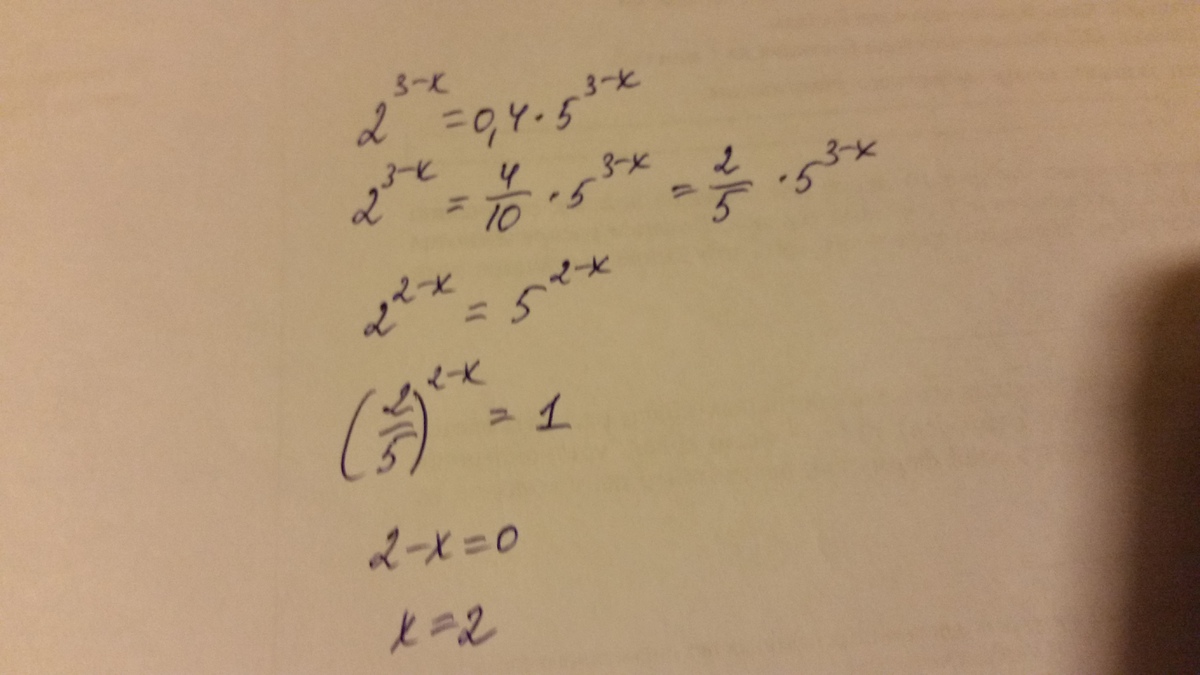 2^{3-x} = 0,4 · 5^{3-x}
2^{3-x} = \frac{4}{10} · 5^{3-x} = \frac{2}{5} · 5^{3-x}
2^{2-x} = 5^{2-x}
(\frac{2}{5})^{2-x} = 1
2-x=0
x=2